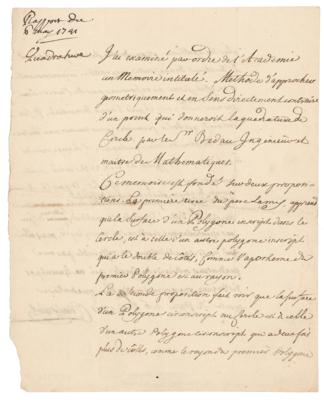 Rapport du
6 may 1741
Quadrature
J'ai examiné par ordre de l'Academie
un Memoire intitulé. Methode d'approcher
geometriquement et en sens directement contraire
d'un point qui donneroit la quadrature du
Cercle par le Sr. Bedau Ingenieur et
maitre de Mathematiques.
Ce memoire est fondé sur deux proposi-
tions. La premiere tirée du pere Lamy apprend
que la surface d'un Polygone inscript dans le
Cercle, est a celle d'un autre polygone inscript
qui a le double de côtés, comme l'apotheme du
premier Polygone est au rayon.
La seconde proposition fait voir que la surface
d'un Polygone circonscript au Cercle est a celle
d'un autre Polygone circonscript qui a deux fois
plus de côtés, comme le rayon du premier Polygone